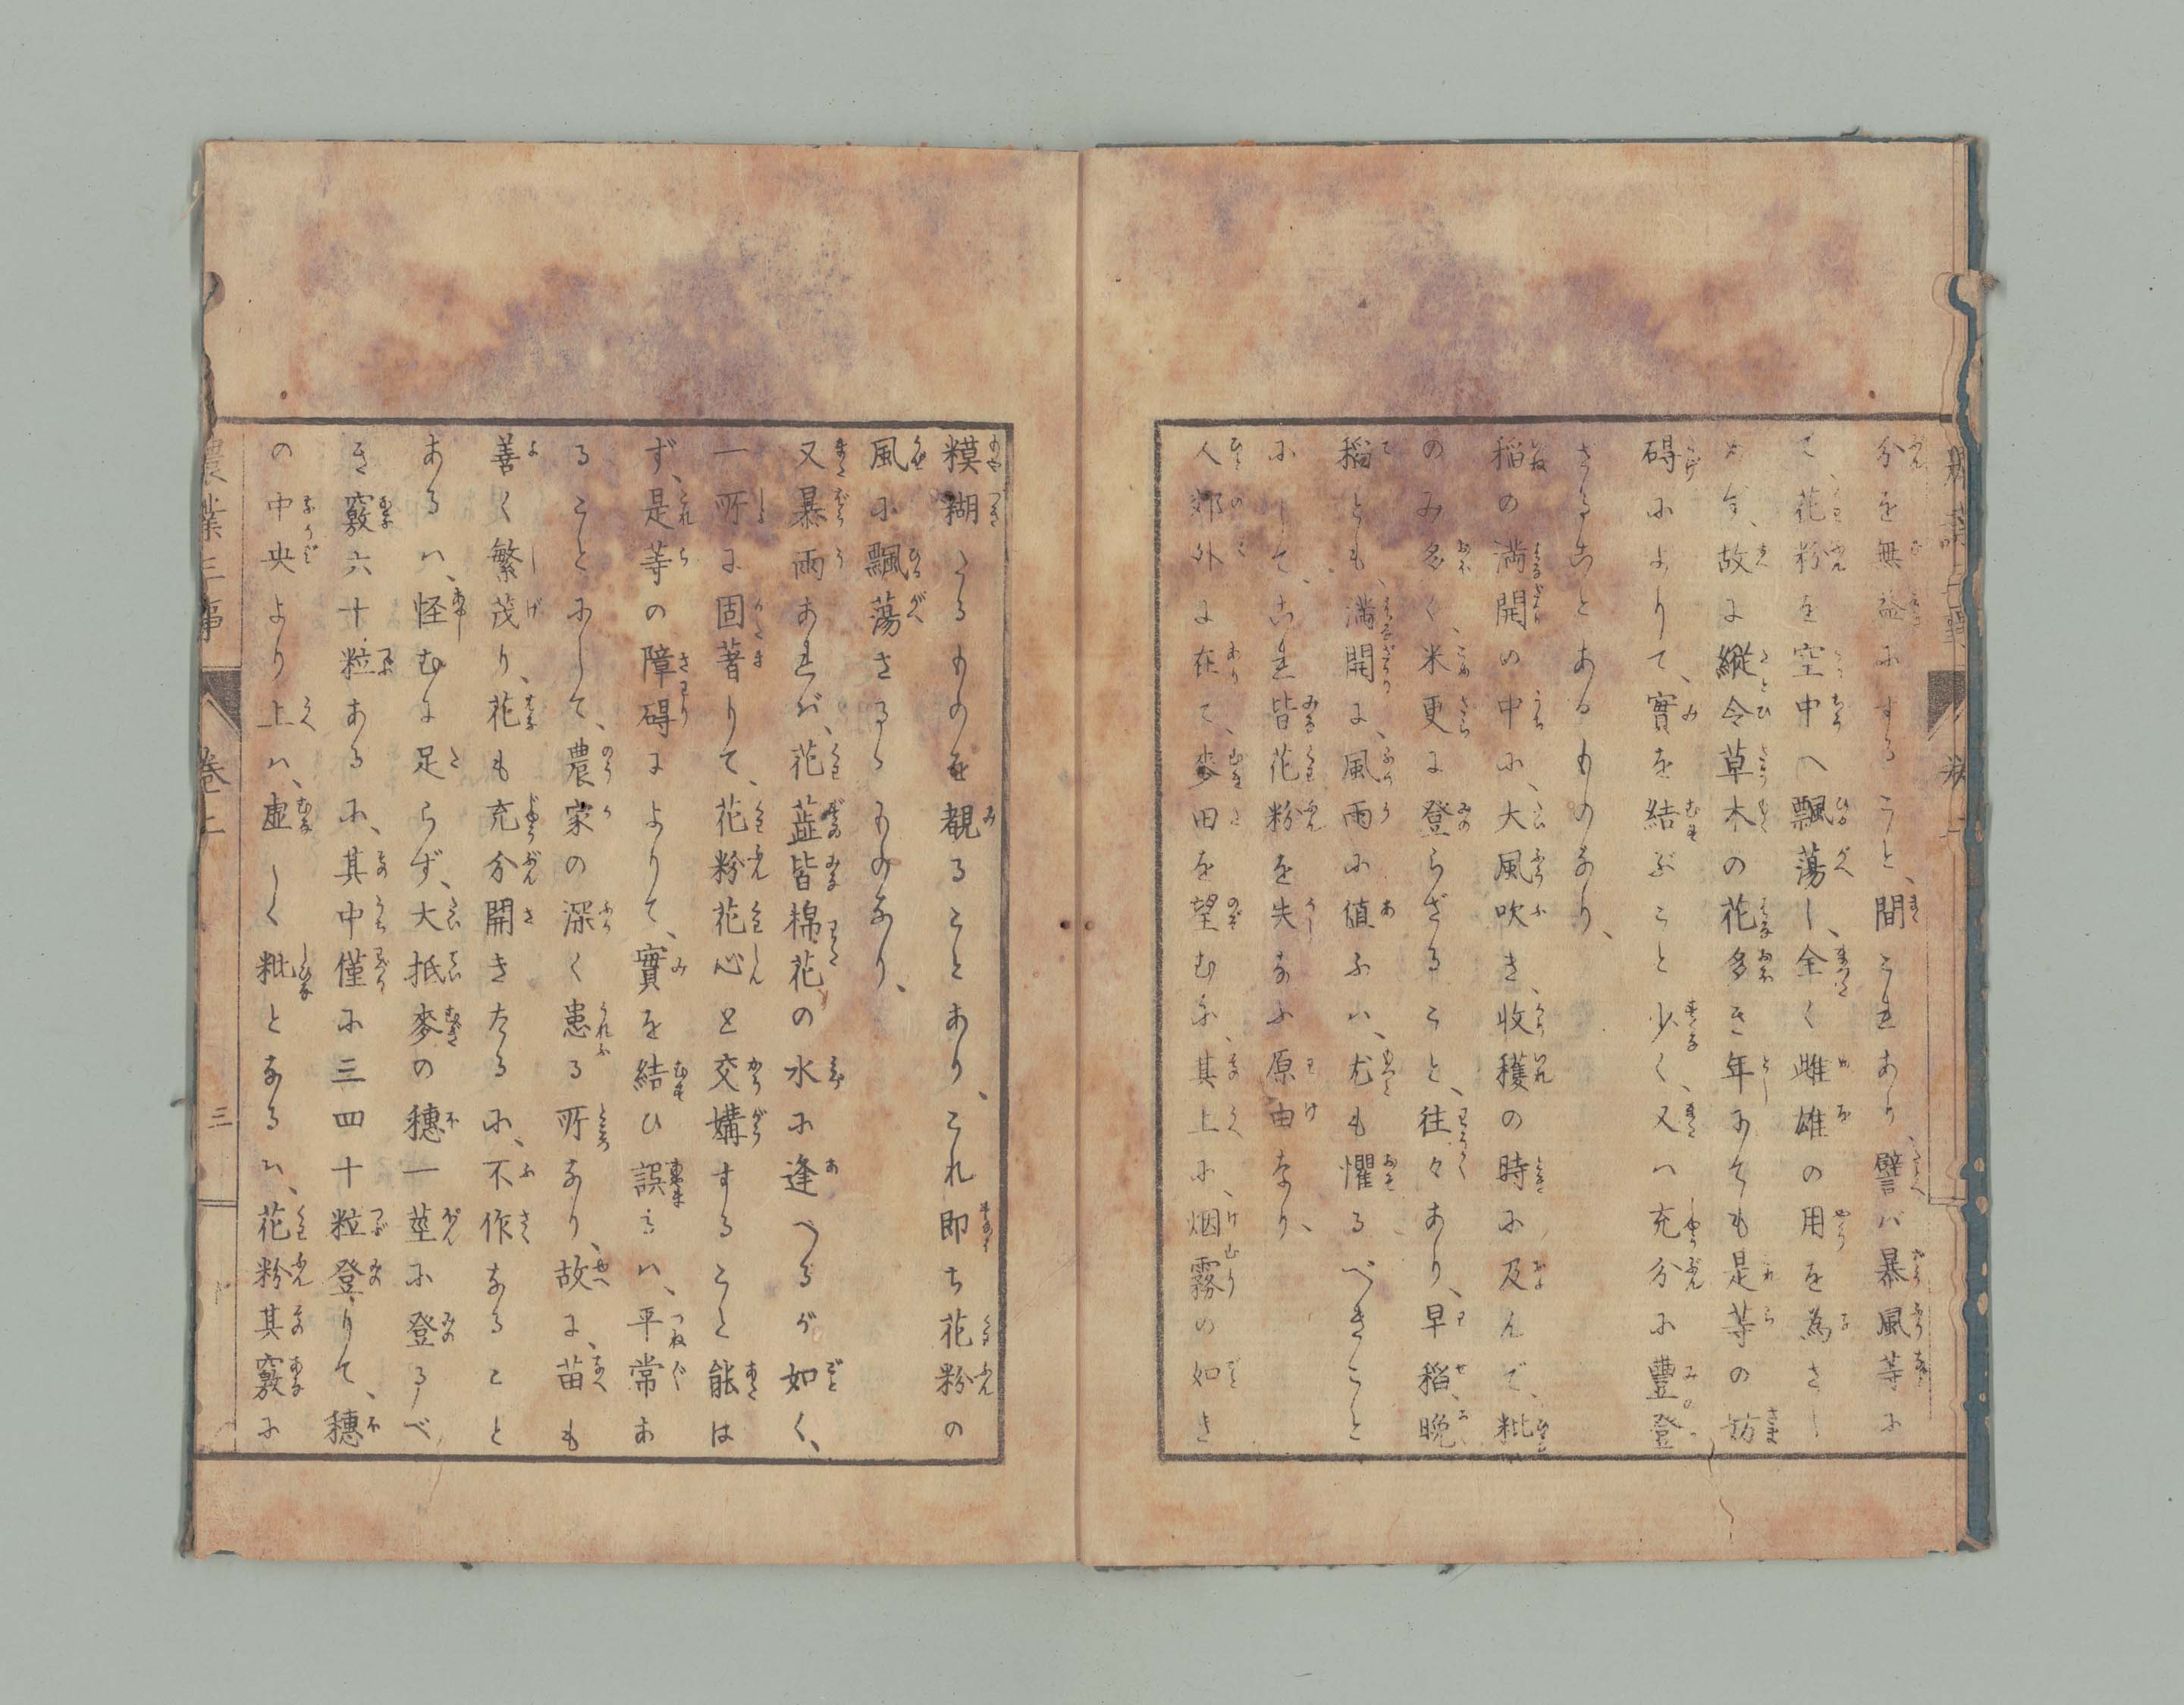 分を無益にすること、間これあり、譬バ暴風等に
て、花粉を空中へ飄蕩し、全く雌雄の用を為さし
めず、故に縦令草木の花多き年にても是等の妨
碍によりて、實を結ぶこと少く、又ハ充分に豐登
さることあるものなり、
稲の満開の中に、大風吹き、收穫の時に及んで、粃
のみ多く、米更に登らざること、往々あり、早稲、晩
稲とも、満開に、風雨に値ふハ、尤も懼るべきこと
にして、これ皆花粉を失なふ原由なり、
人郊外に在て、麥田を望むに、其上に、烟霧の如き
糢糊たるものを観ることあり、これ即ち花粉の
風に飄蕩さるゝものなり、
又暴雨あれバ、花蘂皆棉花の水に逢へるが如く、
一所に固著りて、花粉花心と交媾すること能は
ず、是等の障碍によりて、實を結ひ誤るハ、平常あ
ることにして、農家の深く患る所なり、故に、苗も
善く繁茂り、花も充分開きたるに、不作なること
あるハ、怪むに足らず、大抵麥の穗一莖に登るべ
き竅六十粒あるに、其中僅に三四十粒登りて、穗
の中央より上ハ、虚しく粃となるハ、花粉其竅に
農業三事 卷上 三